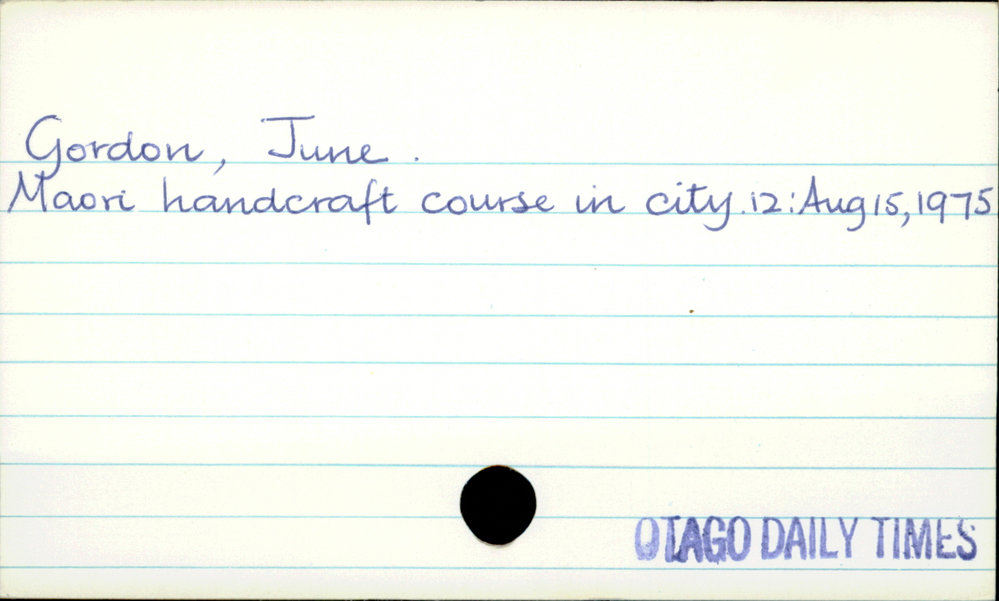 Gordon, June.
Maori handcraft course in city. 12: Aug 15, 1975
OTAGO DAILY TIMES